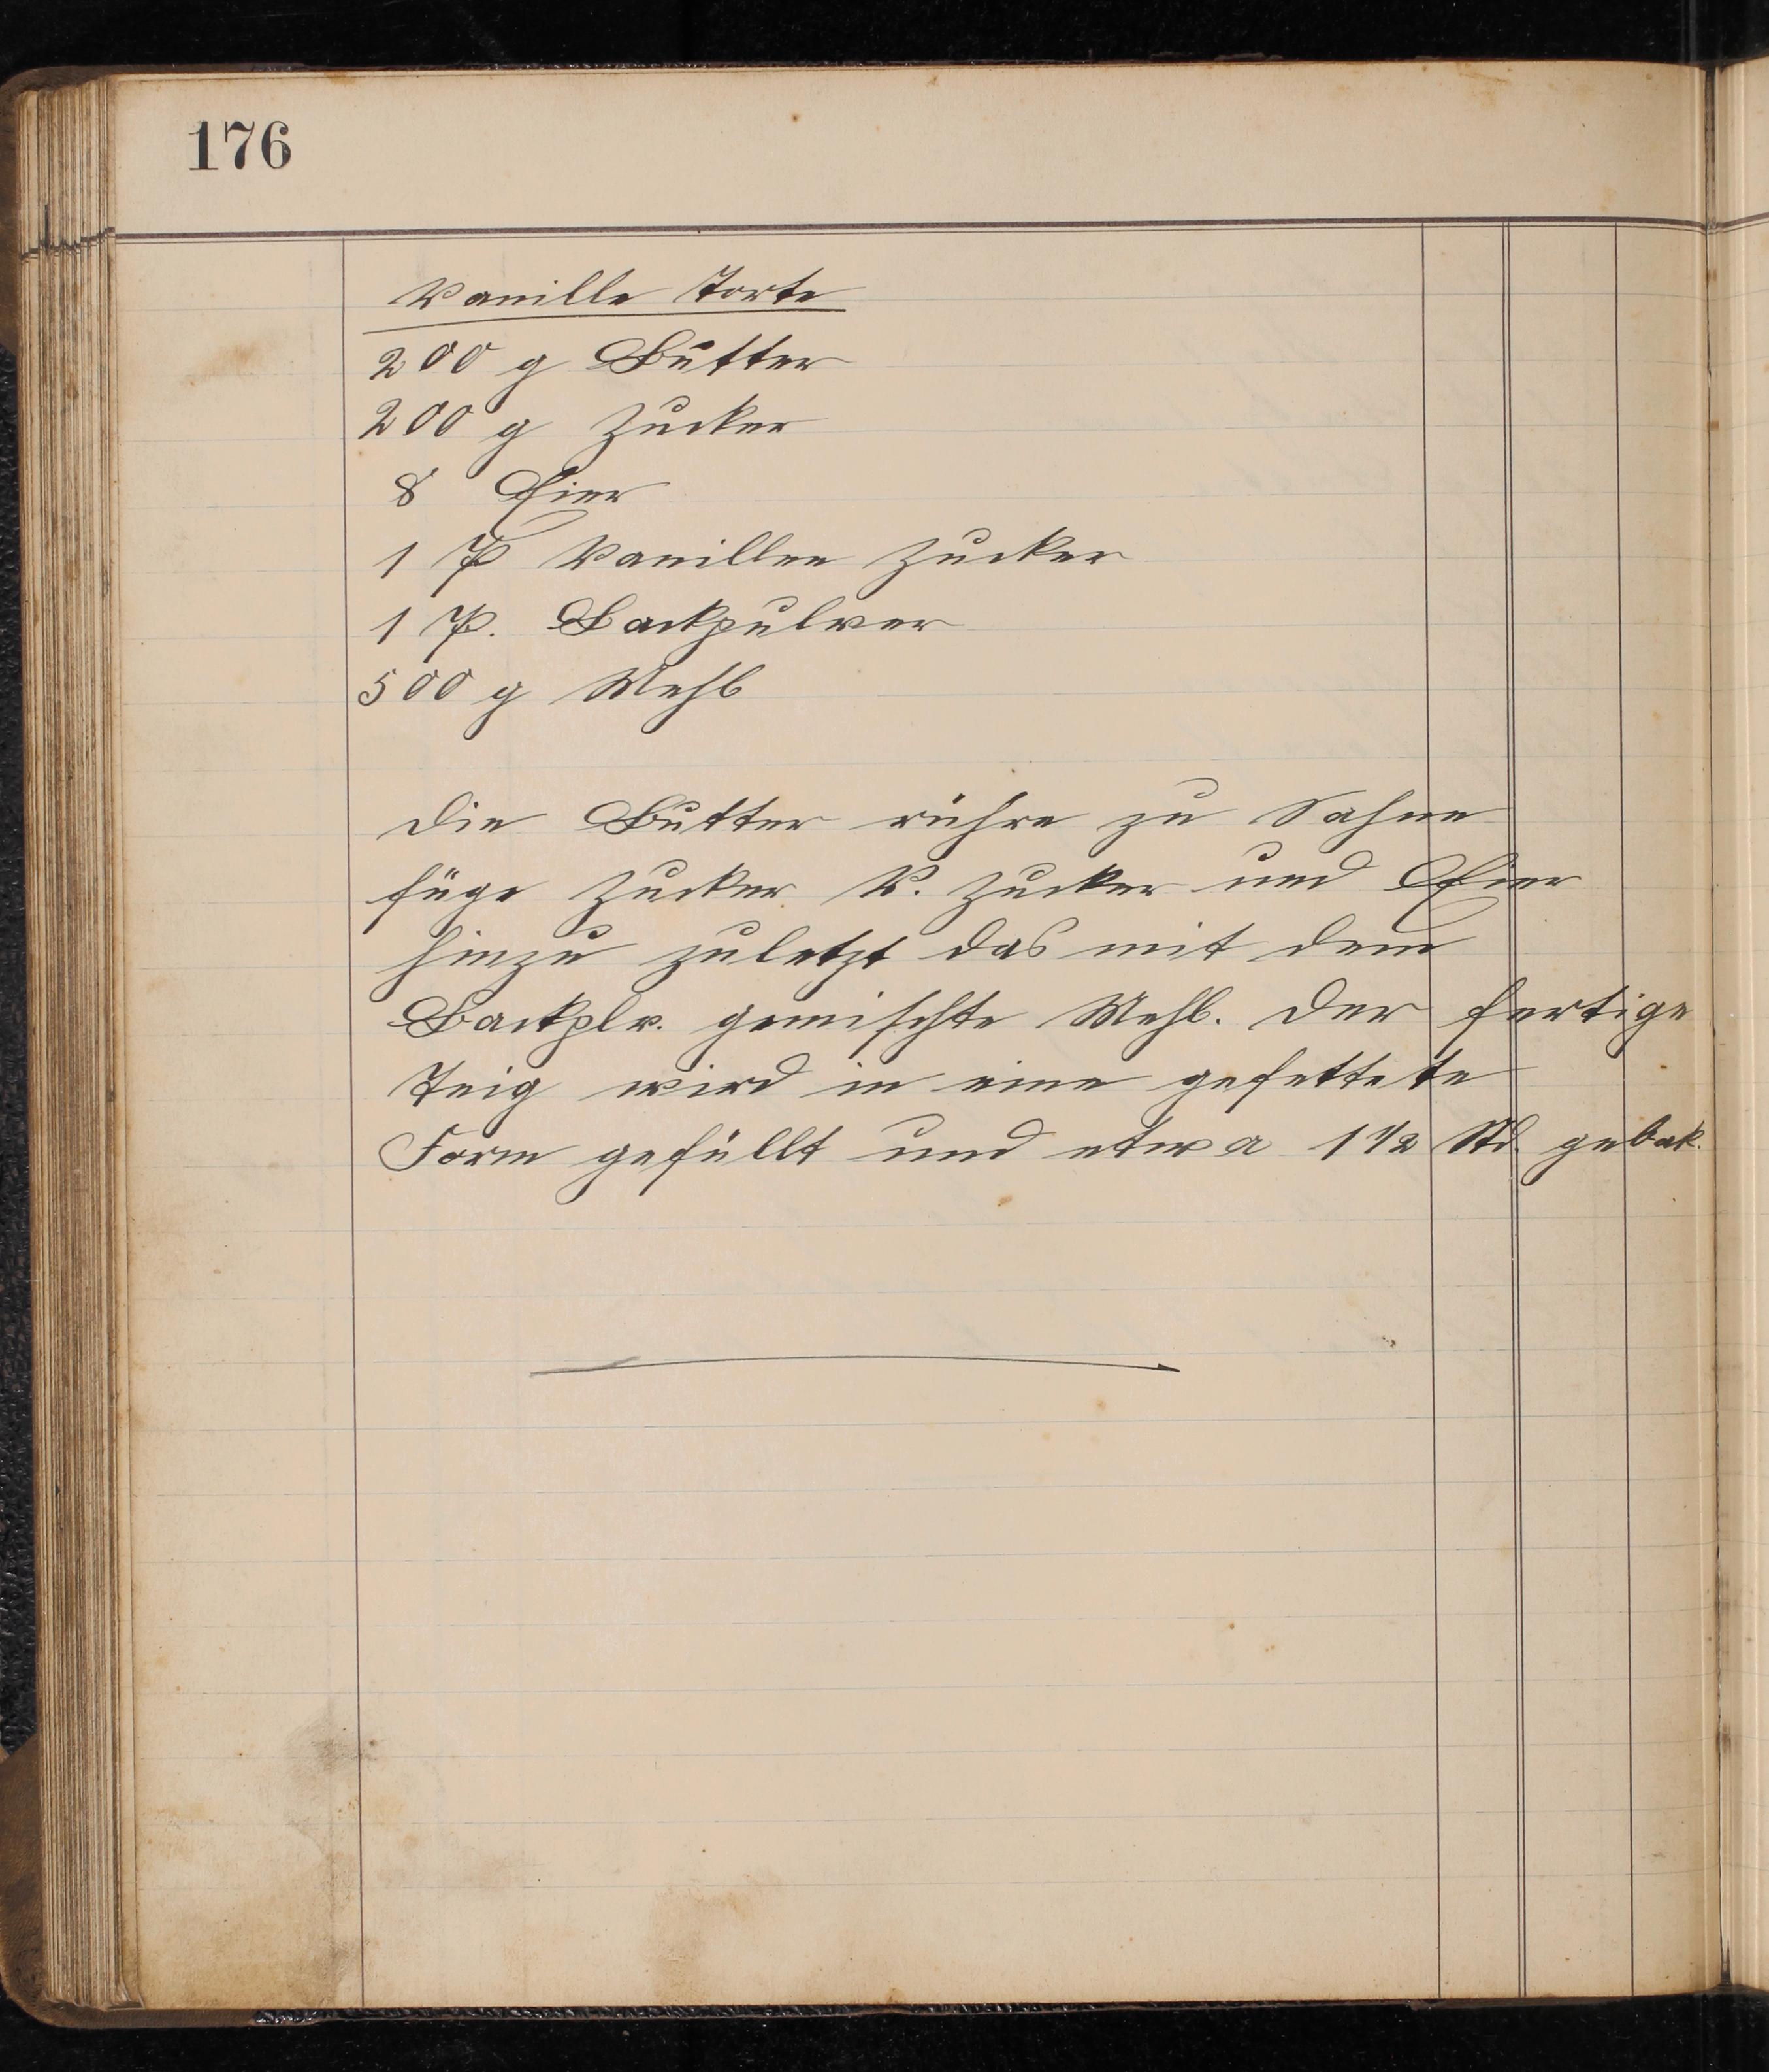 176
Vanille Torte
200 g Butter
200 g Zucker
8 Eier
1 P Vanillen Zucker
1 P. Backpulver
500 g Mehl
Die Butter rühre zu Sahne
füge Zucker V. Zucker und Eier
hinzu zuletzt das mit dem
Backplv. gemischte Mehl. Der fertige
Teig wird in eine gefettete
Form gefüllt und etwa 1 1/2 Std. gebak.